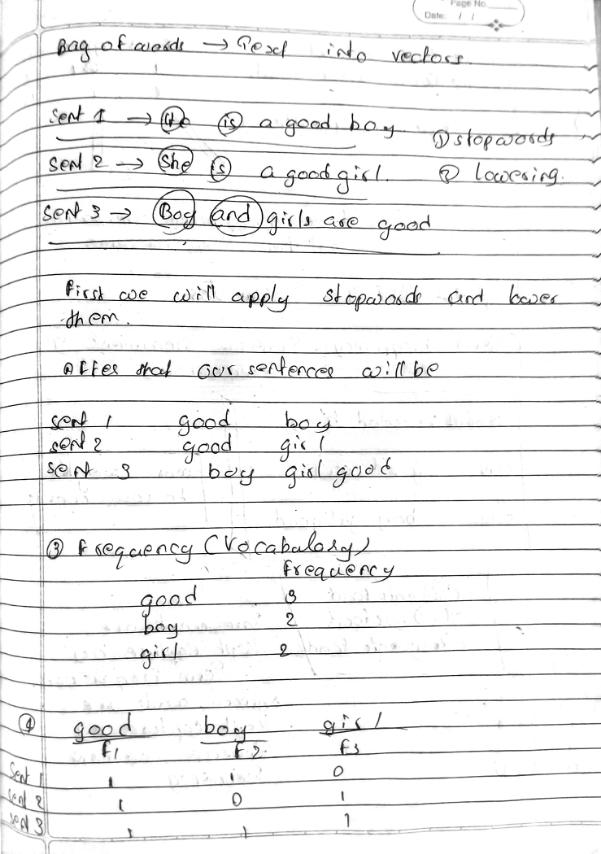 Page No.
Date: / /
Bag of words → Text into vectors
Sent 1 → He is a good boy ① stopwords
Sent 2 → She is a good girl. ② lowering.
Sent 3 → Boy and girls are good
First we will apply stopwords and lower
them.
After that our sentences will be
sent 1 good boy
sent 2 good girl
sent 3 boy girl good
③ Frequency (Vocabulary)
frequency
good 3
boy 2
girl 2
④ good boy girl
f1 f2 f3
Sent 1 1 1 0
sent 2 1 0 1
sent 3 1 1 1